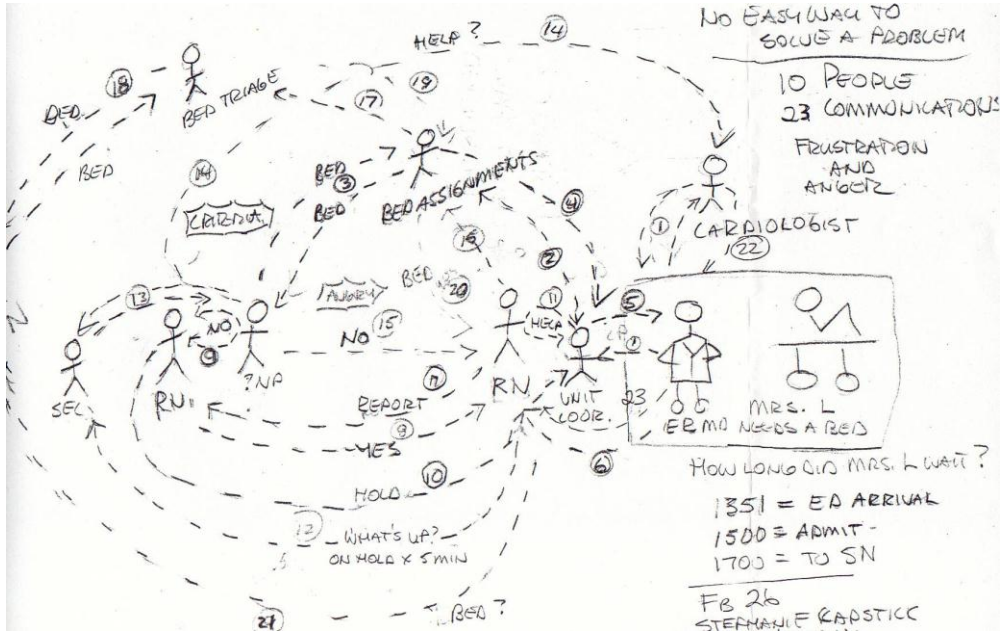 NO EASY WAY TO
SOLVE A PROBLEM
10 PEOPLE
23 COMMUNICATIONS
FRUSTRATION
AND
ANGER
HELP?
14
18
BED
BED
BED TRIAGE
17
19
14
CRITERIA
BED
3
BED
BED ASSIGNMENTS
4
16
2
1
CARDIOLOGIST
22
13
ANGRY
BED
20
11
HELP
5
NO
9
NO
15
SEC.
RN
?NP
RN
UNIT
COOR.
23
ER MD
MRS. L
NEEDS A BED
REPORT
8
YES
6
10
HOLD
12
WHAT'S UP?
ON HOLD X 5 MIN
21
BED?
HOW LONG DID MRS. L WAIT?
1351 = ED ARRIVAL
1500 = ADMIT
1700 = TO 5N
FB 26
STEPHANIE CAPSTICK